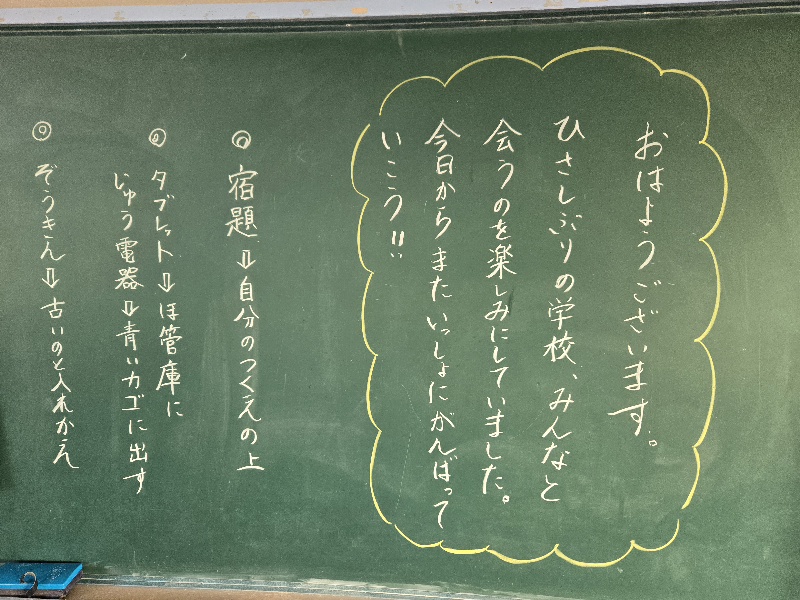 おはようございます。
ひさしぶりの学校、みんなと
会うのを楽しみにしていました。
今日からまたいっしょにがんばって
いこう!!
◎ 宿題⇩自分のつくえの上
◎ タブレット⇩ほ管庫に
じゅう電器⇩青いカゴに出す
◎ ぞうきん⇩古いのと入れかえ